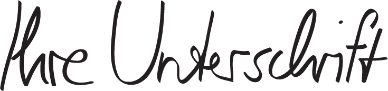 Ihre Unterschrift